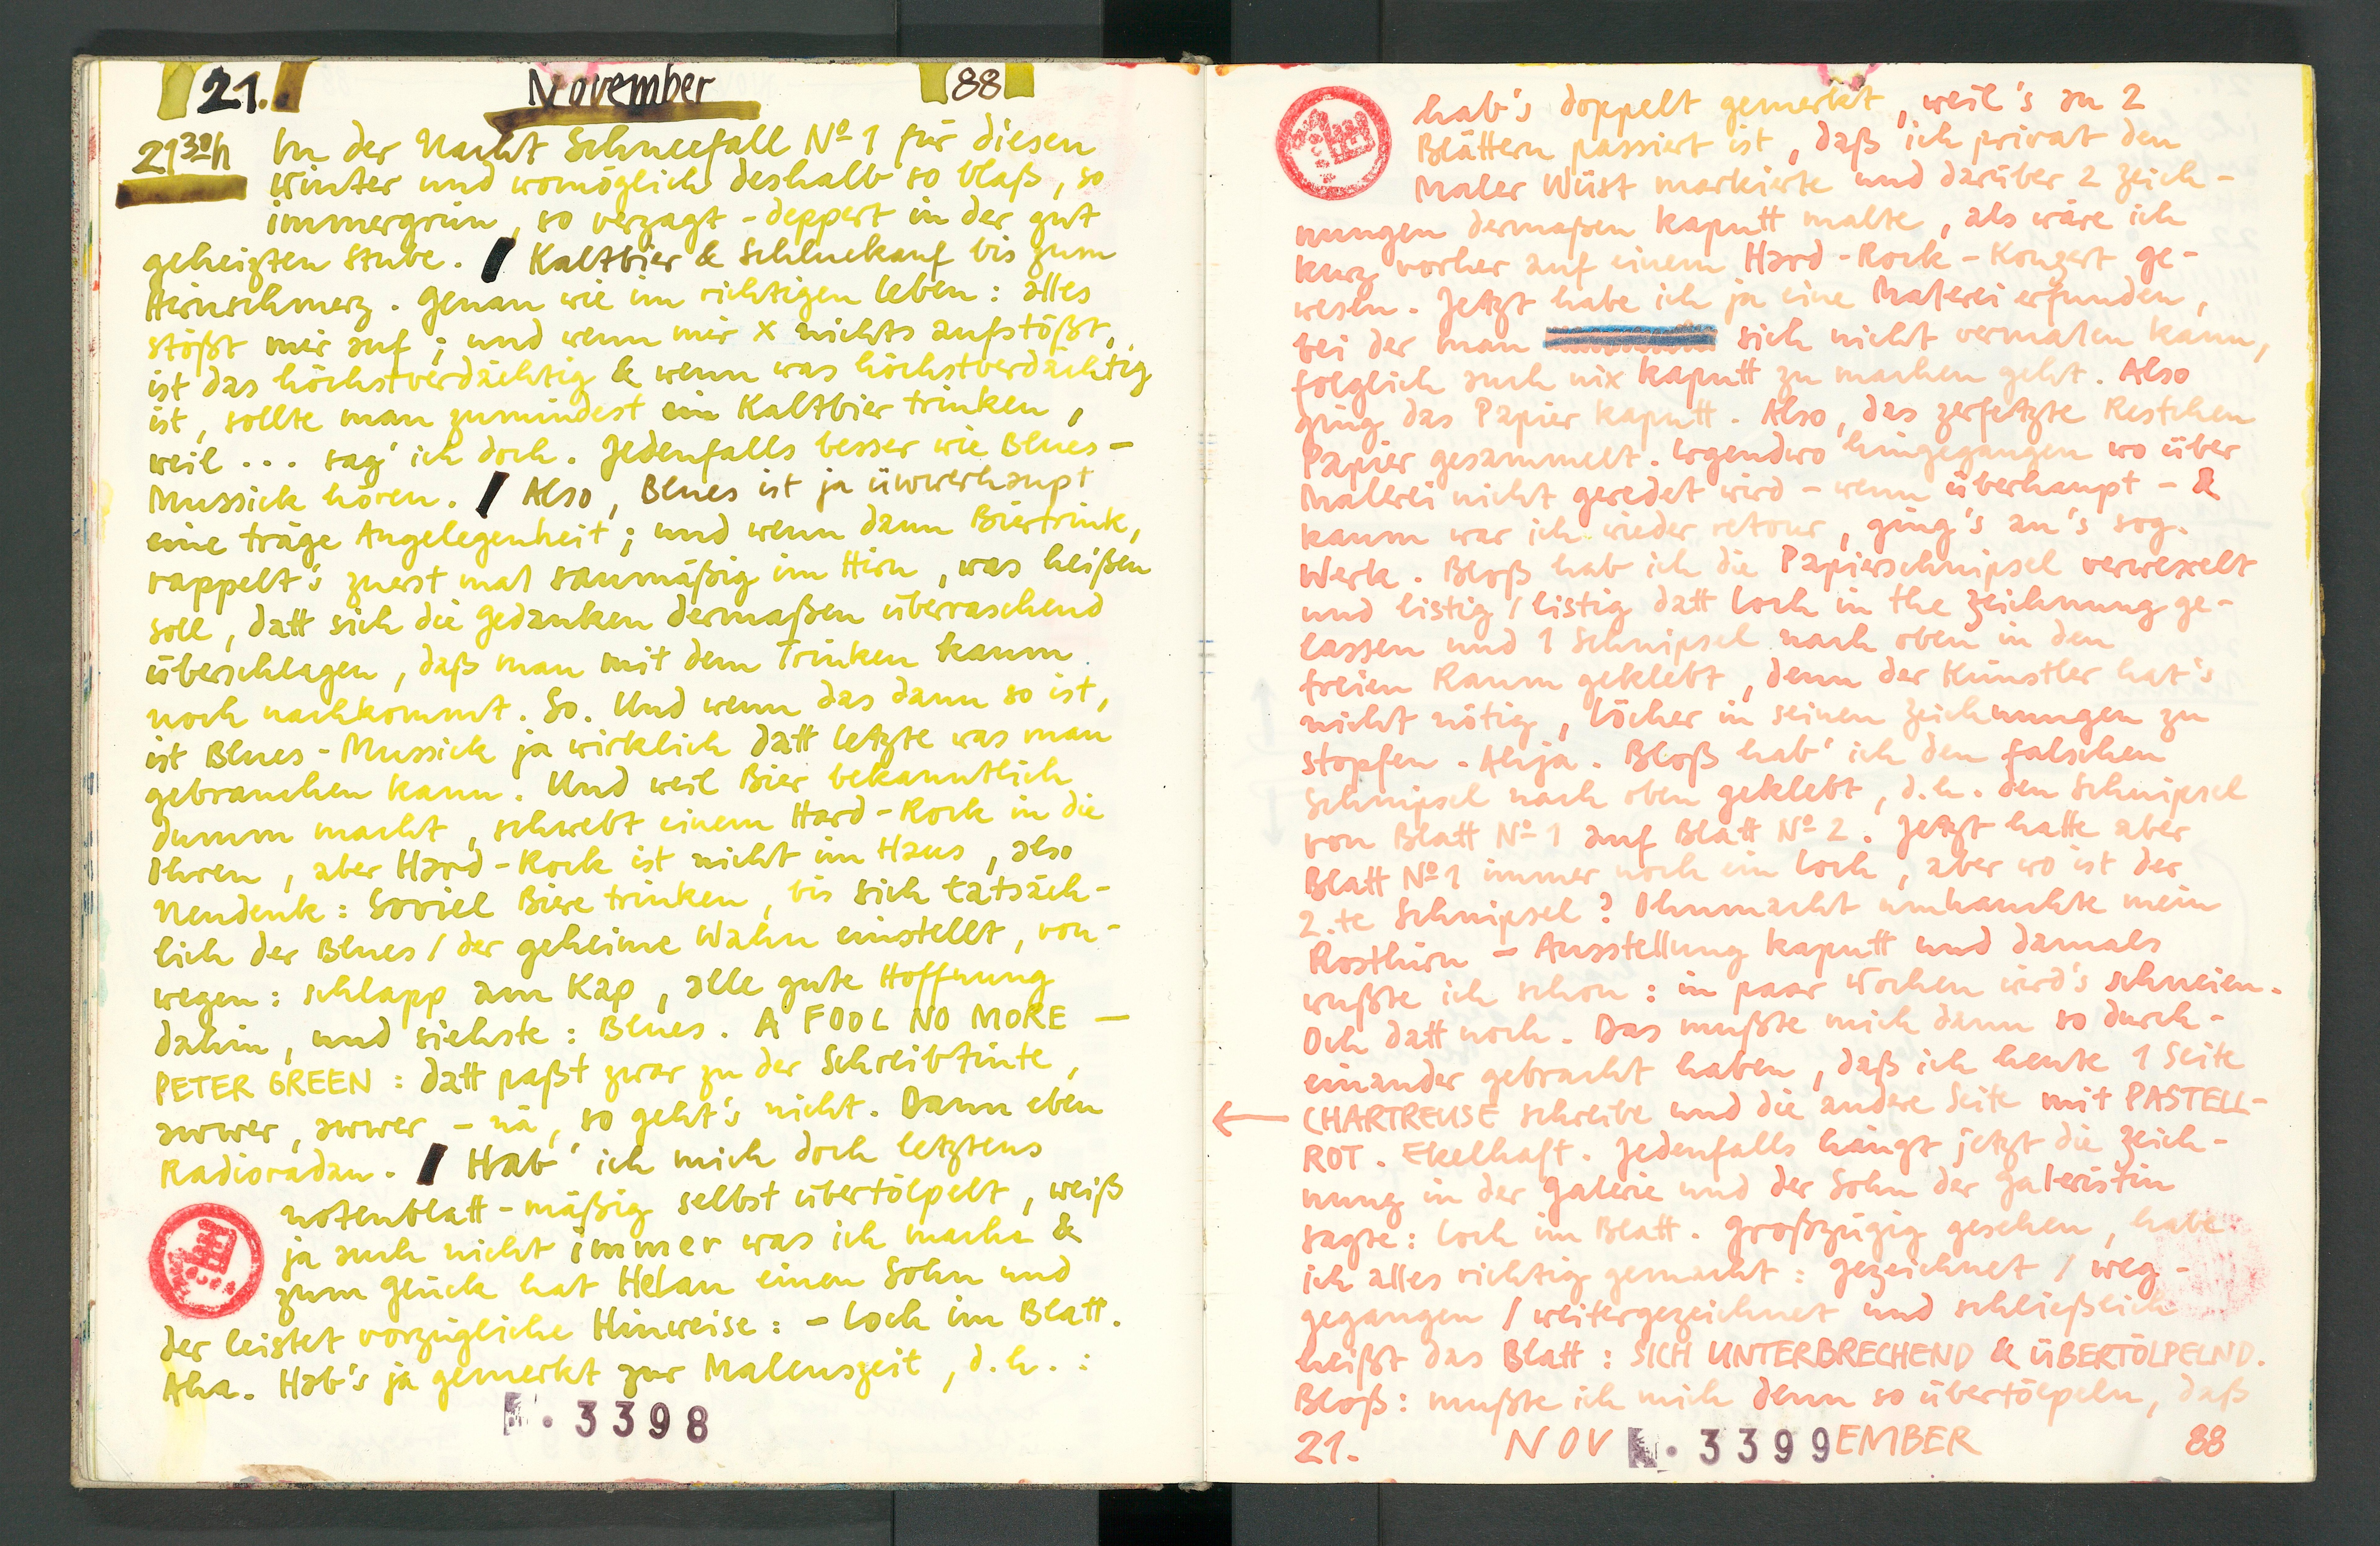 21. November 88
21³⁰h In der Nacht Schneefall Nº 1 für diesen
Winter und womöglich deshalb so blaß, so
immergrün, so verzagt-deppert in der gut
geheizten Stube. ❙ Kaltbier & Schluckauf bis zum
Hirnschmerz. Genau wie im richtigen Leben: alles
stößt mir auf; und wenn mir x nichts aufstößt,
ist das höchstverdächtig & wenn was höchstverdächtig
ist, sollte man zumindest ein Kaltbier trinken,
weil ... sag' ich doch. Jedenfalls besser wie Blues-
Mussick hören. ❙ Also, Blues ist ja üwwerhaupt
eine träge Angelegenheit; und wenn dann Biertrink,
rappelt's zuerst mal saumäßig im Hirn, was heißen
soll, datt sich die Gedanken dermaßen überraschend
überschlagen, daß man mit dem Trinken kaum
noch nachkommt. So. Und wenn das dann so ist,
ist Blues-Mussick ja wirklich datt letzte was man
gebrauchen kann. Und weil Bier bekanntlich
dumm macht, schwebt einem Hard-Rock in die
Ohren, aber Hard-Rock ist nicht im Haus, also
Neudenk: Soviel Biere trinken, bis sich tatsäch-
lich der Blues / der geheime Wahn einstellt, von-
wegen: schlapp am Kap, alle gute Hoffnung
dahin, und siehste: Blues. A FOOL NO MORE —
PETER GREEN: datt paßt zwar zu der Schreibtinte,
awwer, awwer - nä, so geht's nicht. Dann eben
Radioradau. ❙ Hab' ich mich doch letztens
notenblatt-mäßig selbst übertölpelt, weiß
ja auch nicht immer was ich mache &
zum Glück hat Helau einen Sohn und
der leistet vorzügliche Hinweise: - Loch im Blatt.
Aha. Hab's ja gemerkt zur Malenszeit, d.h.:
N. 3398
hab's doppelt gemerkt, weil's an 2
Blättern passiert ist, daß ich privat den
Maler Wüst markierte und darüber 2 Zeich-
nungen dermaßen kaputt malte, als wäre ich
kurz vorher auf einem Hard-Rock-Konzert ge-
wesen. Jetzt habe ich ja eine Malerei erfunden,
bei der man sich nicht vermalen kann,
folglich auch nix kaputt zu machen geht. Also
ging das Papier kaputt. Also, das zerfetzte Restchen
Papier gesammelt. Irgendwo hingegangen wo über
Malerei nicht geredet wird - wenn überhaupt - &
kaum war ich wieder retour, ging's an's sog.
Werk. Bloß hab ich die Papierschnipsel verwexelt
und listig / listig datt Loch in the Zeichnung ge-
lassen und 1 Schnipsel nach oben in den
freien Raum geklebt, denn der Künstler hat's
nicht nötig, Löcher in seinen Zeichnungen zu
stopfen. Ahja. Bloß hab' ich den falschen
Schnipsel nach oben geklebt, d.h. den Schnipsel
von Blatt Nº 1 auf Blatt Nº 2. Jetzt hatte aber
Blatt Nº 1 immer noch ein Loch, aber wo ist der
2.te Schnipsel? Ohnmacht umhauchte mein
Rosthirn - Ausstellung kaputt und damals
wußte ich schon: in paar Wochen wird's schneien.
Och datt noch. Das mußte mich dann so durch-
einander gebracht haben, daß ich heute 1 Seite
← CHARTREUSE schreibe und die andere Seite mit PASTELL-
ROT. Ekelhaft. Jedenfalls hängt jetzt die Zeich-
nung in der Galerie und der Sohn der Galeristin
sagte: Loch im Blatt. Großzügig gesehen, habe
ich alles richtig gemacht: gezeichnet / weg-
gegangen / weitergezeichnet und schließlich
heißt das Blatt: SICH UNTERBRECHEND & ÜBERTÖLPELND.
Bloß: mußte ich mich denn so übertölpeln, daß
21. NOV N. 3399 EMBER 88